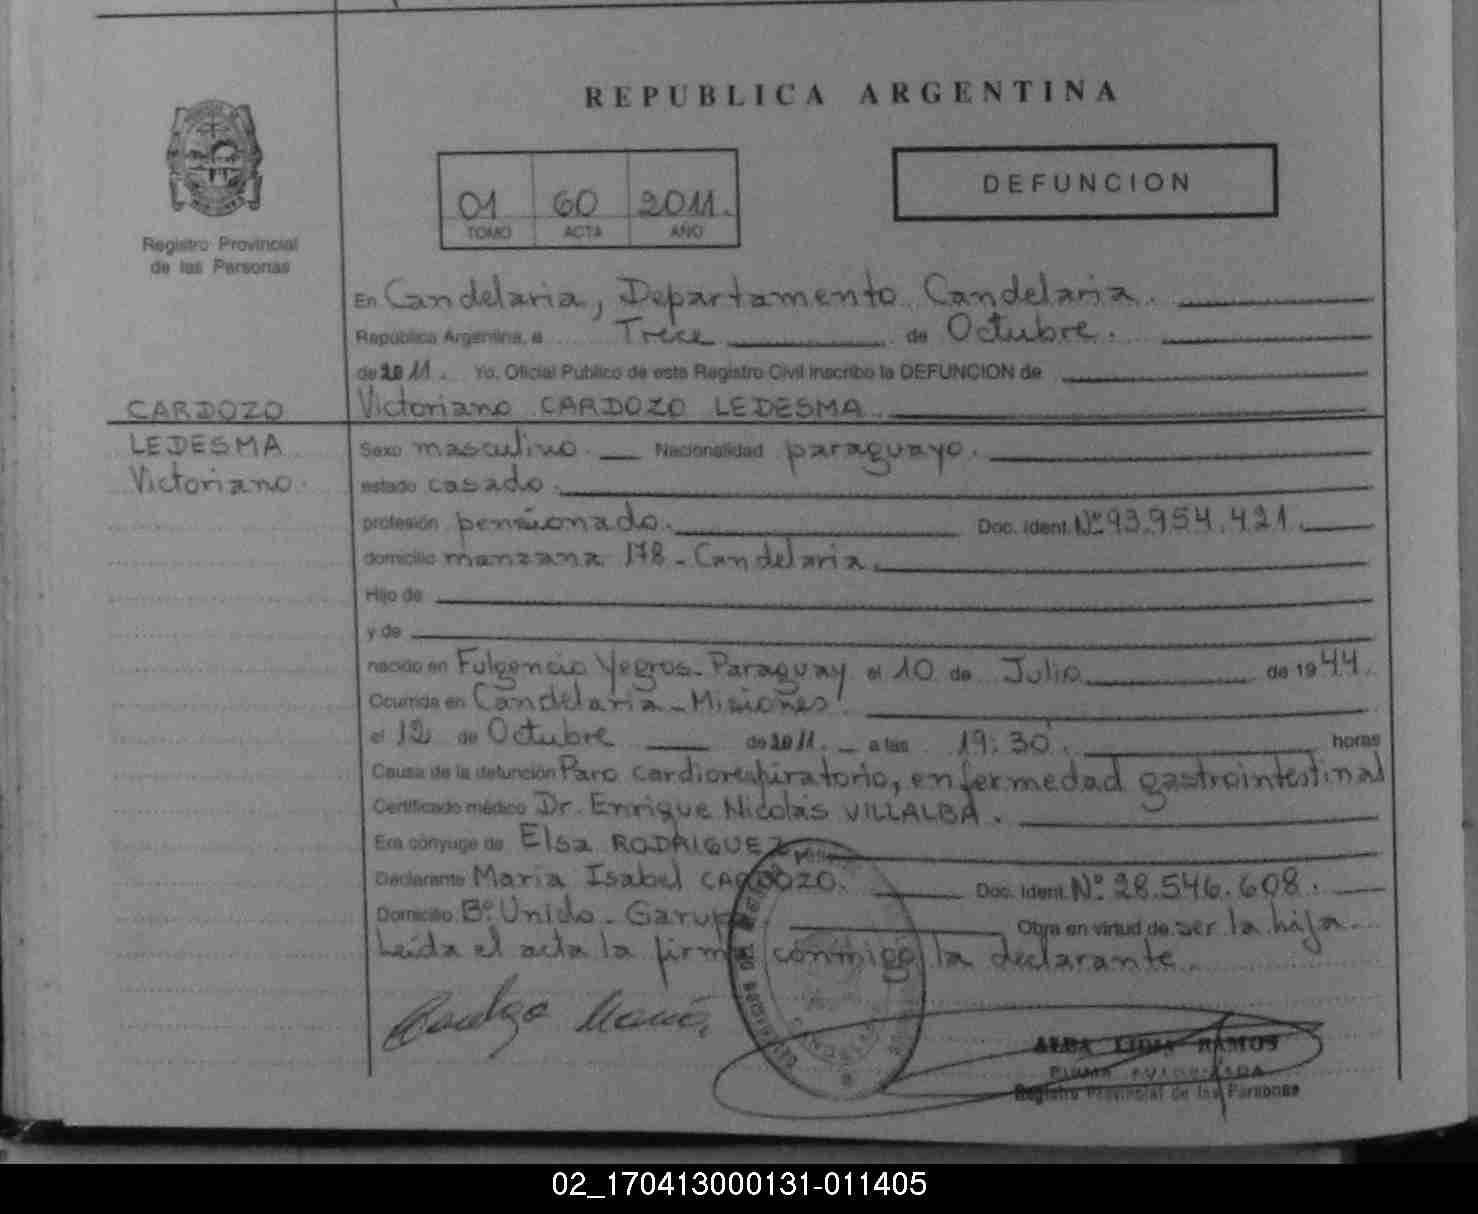 REPUBLICA ARGENTINA
DEFUNCION
01 60 2011.
TOMO ACTA AÑO
Registro Provincial
de las Personas
En Candelaria, Departamento Candelaria.
República Argentina, a Trece de Octubre.
de 2011. Yo, Oficial Público de este Registro Civil inscribo la DEFUNCION de
CARDOZO Victoriano CARDOZO LEDESMA
LEDESMA Sexo masculino. Nacionalidad paraguayo.
Victoriano. estado casado.
profesión pensionado. Doc. Ident. Nº 93.954.421.
domicilio manzana 178 - Candelaria.
Hijo de
y de
nacido en Fulgencio Yegros - Paraguay el 10 de Julio de 1944.
Ocurrida en Candelaria - Misiones
el 12 de Octubre de 2011. a las 19:30. horas
Causa de la defunción Paro cardiorespiratorio, enfermedad gastrointestinal
Certificado médico Dr. Enrique Nicolás VILLALBA.
Era cónyuge de Elsa RODRIGUEZ
Declarante María Isabel CARDOZO. Doc. Ident. Nº 28.546.608.
Domicilio Bº Unido - Garupá Obra en virtud de ser la hija.
Leída el acta la firma conmigo la declarante.
Cardozo María
ALBA LIDIA RAMOS
FIRMA AUTORIZADA
Registro Provincial de las Personas
02_170413000131-011405